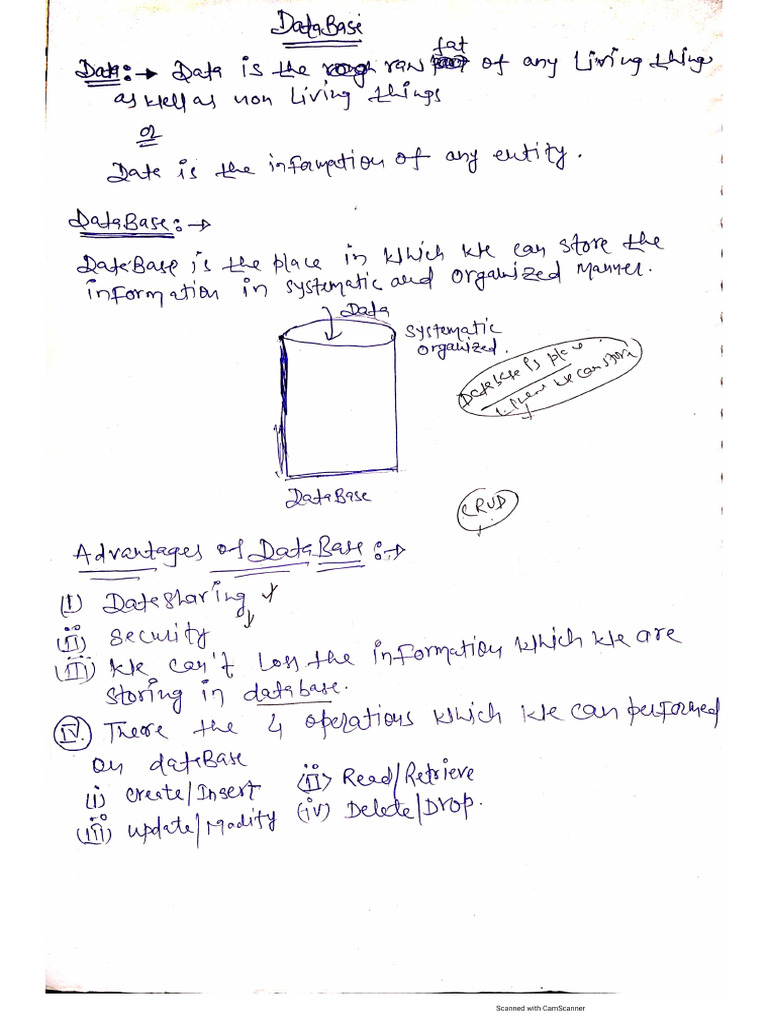 DataBase
Data:→ Data is the raw fat of any Living things
as well as non Living things
or
Data is the information of any entity.
DataBase:→
DataBase is the place in which we can store the
information in systematic and organized manner.
Data
systematic
organized.
DataBase is place
where we can store
DataBase
CRUD
Advantages of DataBase:→
(i) DataSharing
(ii) Security
(iii) we can't Loss the information which we are
storing in database.
(iv) There the 4 operations which we can performed
on dataBase
(i) Create/Insert (ii) Read/Retrieve
(iii) update/Modify (iv) Delete/Drop.
Scanned with CamScanner